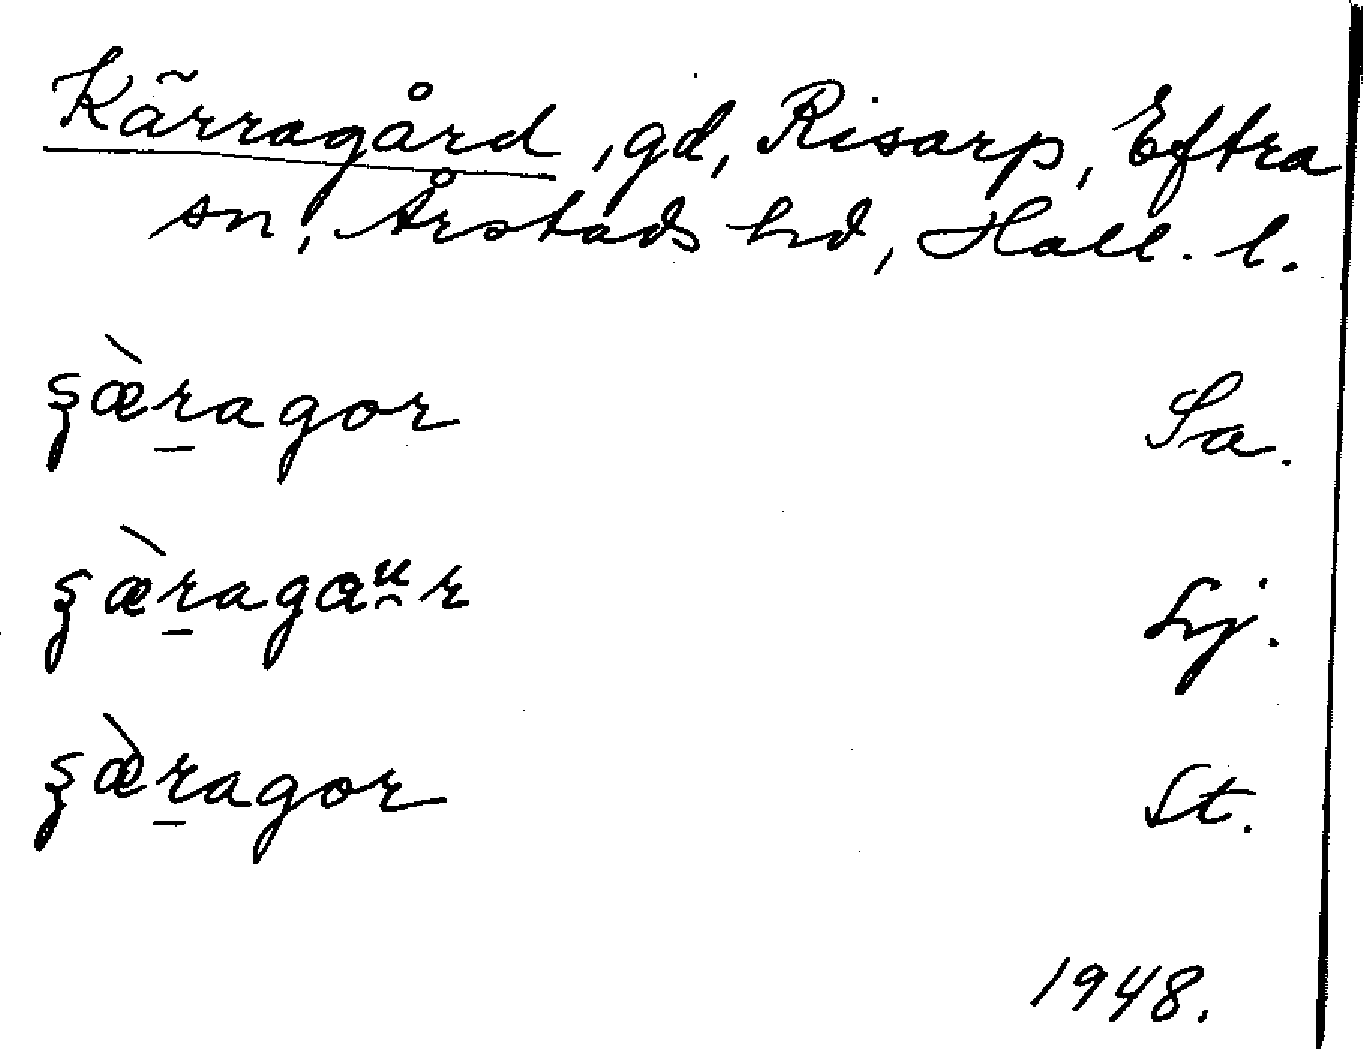 Kärragård, gd, Risarp, Eftra
sn, Årstads hd, Hall. l.
ʂæ̀ṟagor Sa.
ʂæ̀ṟagaᵘr Lj.
ʂæ̀ṟagor St.
1948.